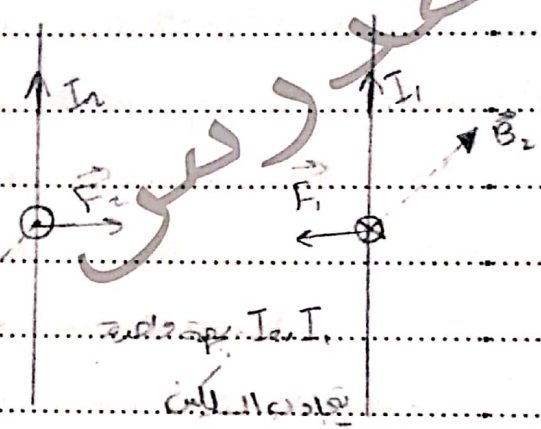 I₂ I₁
B⃗₂
F⃗₂ F⃗₁
I₁ و I₂ بجهة واحدة
تجاذب السلكين